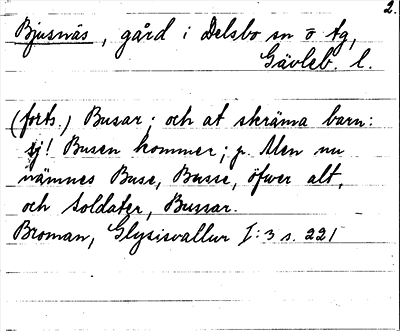 2.
Bjusnäs, gård i Delsbo sn o tg,
Gävleb. l.
(forts.) Busar; och at skräma barn:
sj! Busen kommer; p. Men nu
nämnes Buse, Busse, öfwer alt,
och Soldater, Bussar.
Broman, Glysisvallur I:3 s. 221